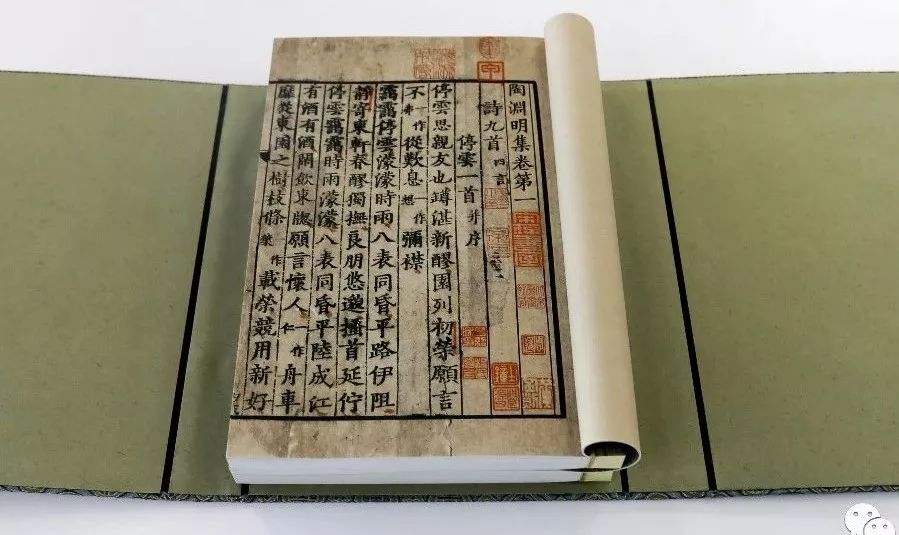 陶淵明集卷第一
詩九首 四言
停雲一首 并序
停雲思親友也罇湛新醪園列初榮願言
不一作弗從歎息一作想彌襟
靄靄停雲濛濛時雨八表同昏平路伊阻
靜寄東軒春醪獨撫良朋悠邈搔首延佇
停雲靄靄時雨濛濛八表同昏平陸成江
有酒有酒閒飲東牕願言懷人一作仁舟車
靡從東園之樹枝條作載榮競用新好